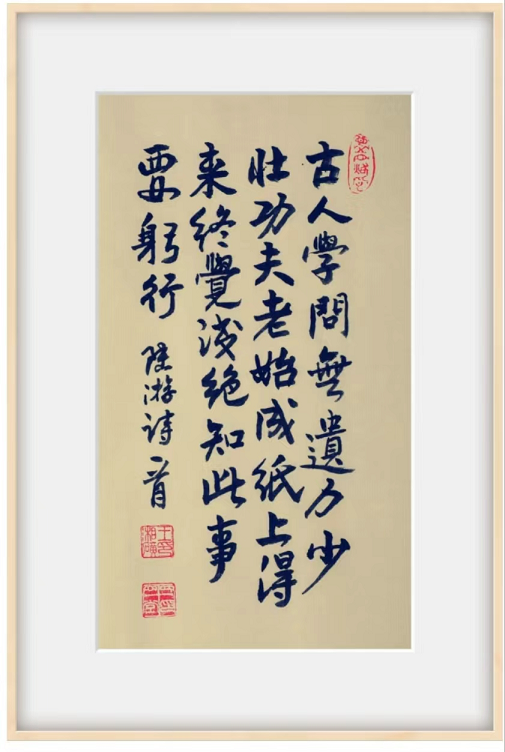 古人學問無遺力少
壯功夫老始成紙上得
来終覺淺絶知此事
要躬行
陸游詩一首